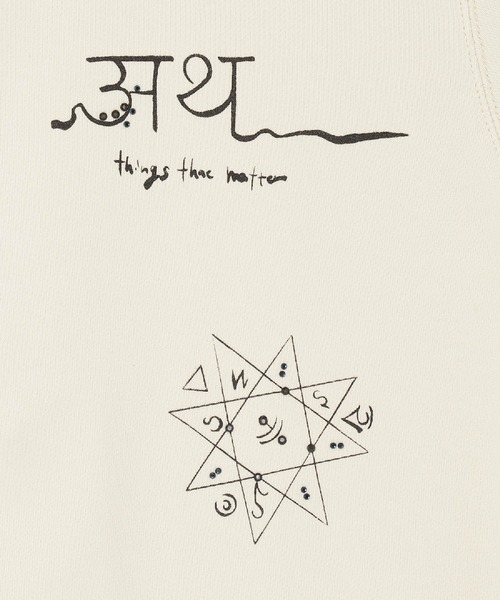 अथ
things that matter